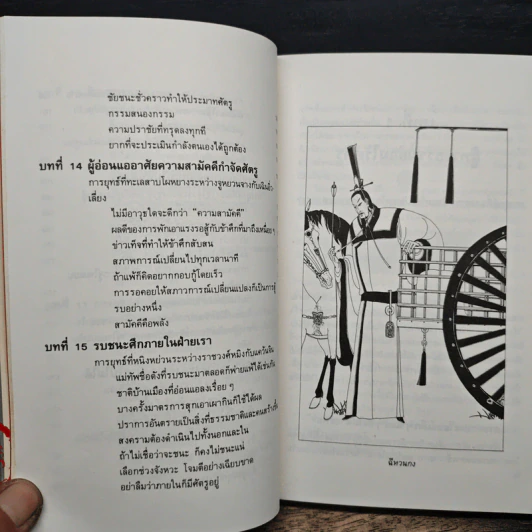 ชัยชนะชั่วคราวทำให้ประมาทศัตรู
กรรมสนองกรรม
ความปราชัยที่ทรุดลงทุกที
ยากที่จะประเมินกำลังตนเองได้ถูกต้อง
บทที่ 14 ผู้อ่อนแออาศัยความสามัคคีกำจัดศัตรู
การยุทธ์ที่ทะเลสาบโผหยางระหว่างจูหยวนจางกับเฉินโหย่ว
เลี่ยง
ไม่มีอาวุธใดจะดีกว่า "ความสามัคคี"
ผลดีของการพักเอาแรงรอสู้กับข้าศึกที่มาถึงเหนื่อย ๆ
ข่าวเท็จที่ทำให้ข้าศึกสับสน
สภาพการณ์เปลี่ยนไปทุกเวลานาที
ถ้าแพ้ก็คิดอยากกอบกู้โดยเร็ว
การรอคอยให้สภาวการณ์เปลี่ยนแปลงก็เป็นการสู้
รบอย่างหนึ่ง
สามัคคีคือพลัง
บทที่ 15 รบชนะศึกภายในฝ่ายเรา
การยุทธ์ที่หนิงหย่วนระหว่างราชวงศ์หมิงกับแคว้นจิน
แม่ทัพชื่อดังที่รบชนะมาตลอดก็พ่ายแพ้ได้เช่นกัน
ชาติบ้านเมืองที่อ่อนแอลงเรื่อย ๆ
บางครั้งมาตรการสุกเอาเผากินก็ใช้ได้ผล
ปราการอันตรายเป็นสิ่งที่ธรรมชาติและคนสร้างขึ้น
สงครามต้องดำเนินไปทั้งนอกและใน
ถ้าไม่เชื่อว่าจะชนะ ก็คงไม่ชนะแน่
เลือกช่วงจังหวะ โจมตีอย่างเฉียบขาด
อย่าลืมว่าภายในก็มีศัตรูอยู่
ฉีหวนกง